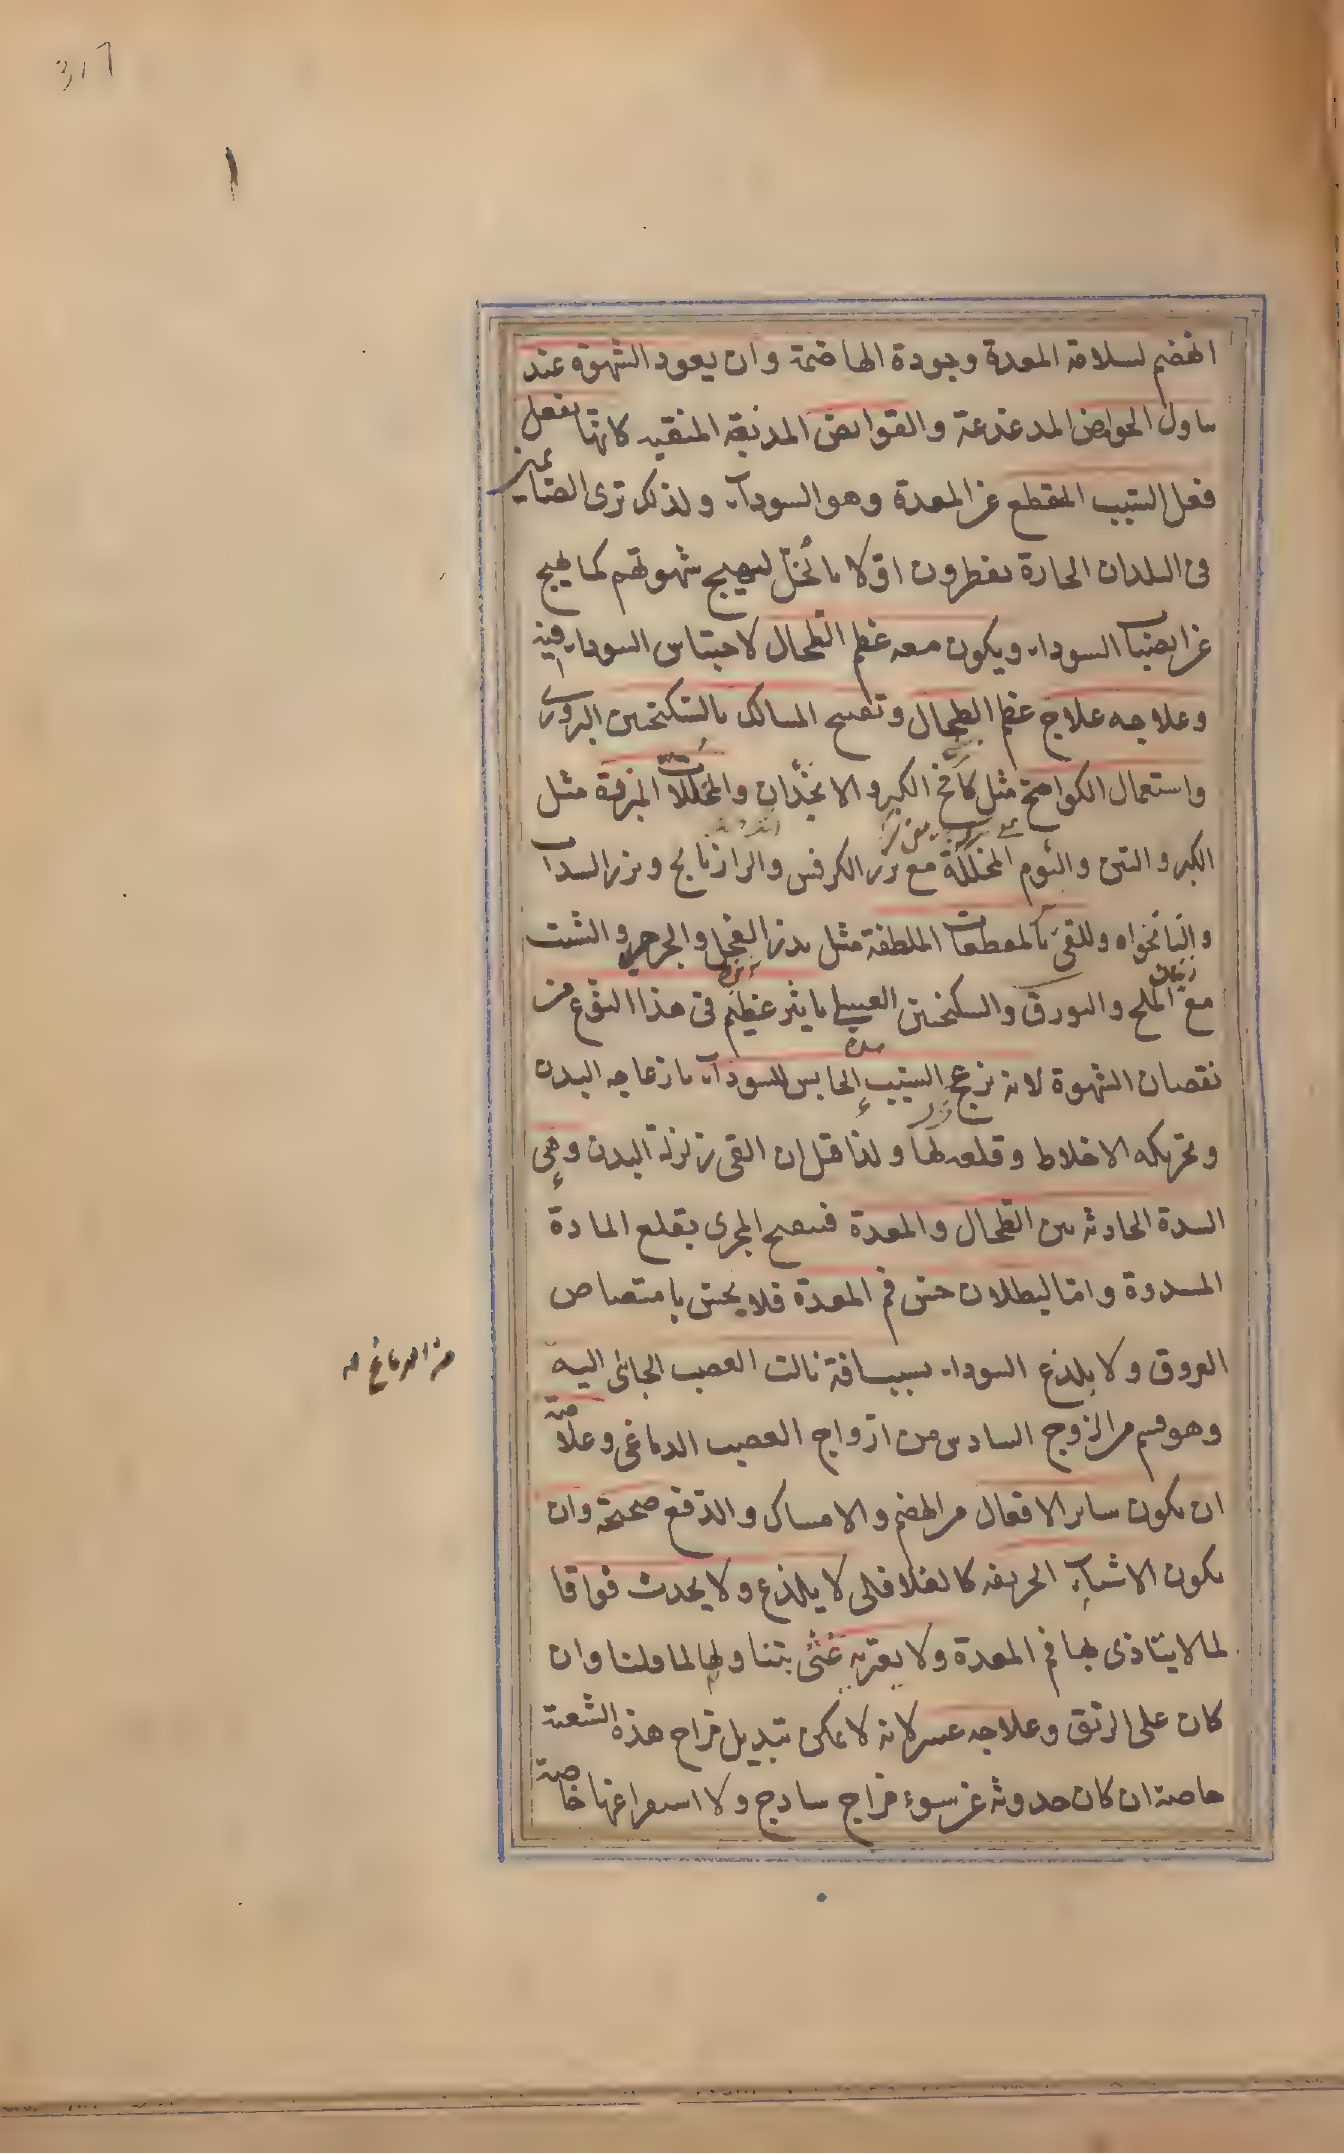 الهضم لسلامة المعدة وجودة الهاضمة وان يعود الشهوة عند
تناول الحوامض المدغدغة والقوابض المدبغة المنقية كانها تفعل
فعل السبب المنقطع عن المعدة وهو السوداء ولذلك ترى الصائمين
فى البلدان الحارة يفطرون اولا بالخل ليهيج شهوتهم كما يهيج
عن انصباب السوداء ويكون معه عظم الطحال لاحتباس السوداء فيه
وعلاجه علاج عظم الطحال وتفتيح المسالك بالسكنجبين البزورى
واستعمال الكوامخ مثل كامخ الكبر والانجذان والمخللات المزقة مثل
الكبر والتين والثوم المخللة مع بزر الكرفس والرازيانج وبزر السداب
والنانخواه وللقى بالمقطعات الملطفة مثل بزر الفجل والجرجير والشبت
مع الملح والبورق والسكنجبين العسلى تاثير عظيم فى هذا النوع من
نقصان الشهوة لانه يزعج السبب الحابس للسوداء بازعاجه البدن
وتحريكه الاخلاط وقلعه لها ولذا قيل ان القى زلزلة البدن وهى
السدة الحادثة بين الطحال والمعدة فينفتح المجرى بقلع المادة
المسدودة واما لبطلان حس فم المعدة فلا يحس بامتصاص
العروق ولا بلذع السوداء بسبب افة نالت العصب الجائى اليه
من الدماغ
وهو قسم من الزوج السادس من ازواج العصب الدماغى وعلامته
ان يكون ساير الافعال من الهضم والامساك والدفع صحيحة وان
يكون الاشياء الحريفة كالفلافلى لا يلذع ولا يحدث فواقا
لما لا يتاذى بها فم المعدة ولا يعتريه غثى بتناولها لما قلنا وان
كان على الريق وعلاجه عسر لانه لا يمكن تبديل مزاج هذه الشعبة
خاصة ان كان حدوثه عن سوء مزاج ساذج ولا استفراغها خاصة